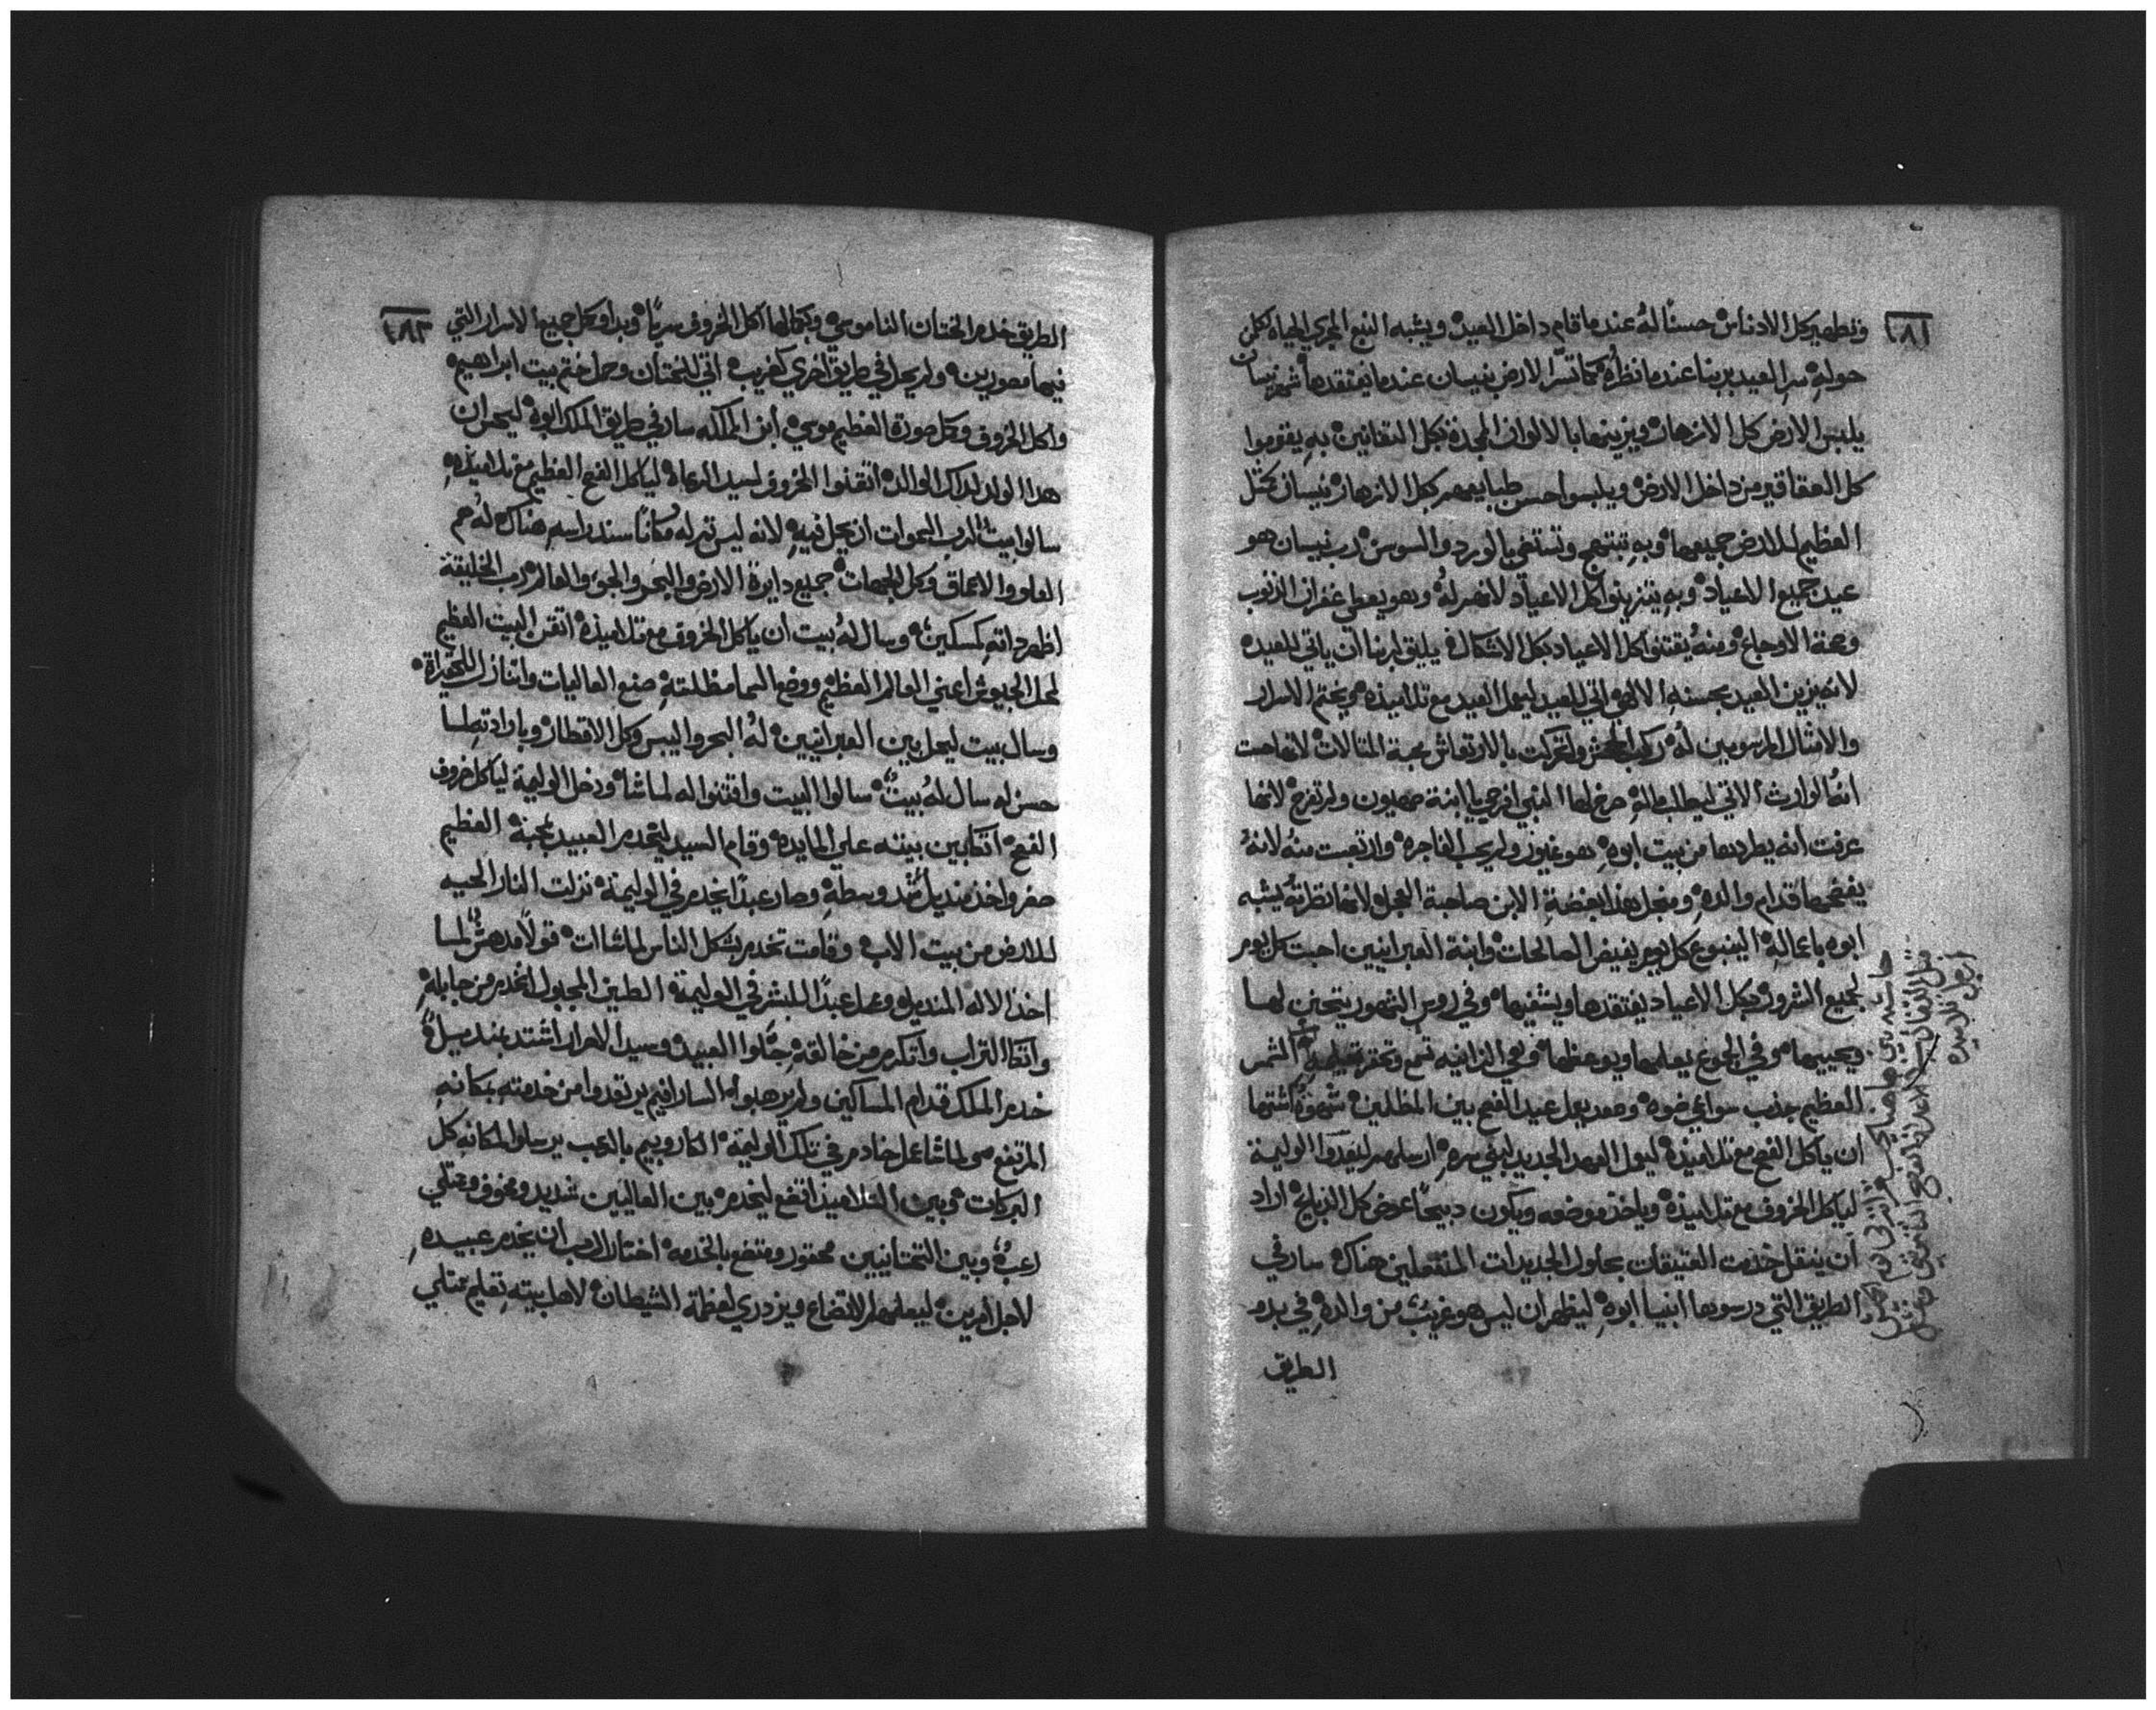 ١٨٢
وتطهير كل الادناس حسنًا لهُ عندما قام داخل العيد ويشبه النبع المجري الحياة لكلمن
حولهِ سر العيد بربنا عندما نظرهُ كما تسّر الارض بنيسان عندما يفتقدها شهر نيسان
يلبس الارض كل الازهار ويزينها بالالوان المجدة بكل التقانين بهِ يقوموا
كل العقاقير من داخل الارض ويلبسوا حسن طبايعهم بكل الازهار نيسان
العظيم للارض جميعها وبهِ تبتهج وتستغني بالورد والسوسن رب نيسان هو
عيد جميع الاعياد وبهِ يتزينوا كل الاعياد لانهم لهُ وهو يعطي غفران الذنوب
وصحة الاوجاع ومنهُ يقتنوا كل الاعياد بكل الاشكال يليق لربنا ان ياتي للعيد
لانه يزين العيد بحسنهِ الالهي اتي للعيد ليعمل العيد مع تلاميذه ويختم الاسرار
والامثال المرسومين لهُ ركب الجحش وتحركت بالارتعاش محبة التمثالات لانها حست
انهُ الوارث الاتي ليطلب مالهِ صرخ لها النبي افرحي يا ابنة صهيون ولم تفرح لانها
عرفت انه يطردها من بيت ابوهِ هو غيور ولم يحب الفاجرة وارتعبت منهُ لانهُ
يفضحها قدام والدهِ ومنجل هذا بغضة الابن صاحبة العجل لانها نظرتهُ يشبه
ابوه باعمالهِ الينبوع كل يوم يفيض الصالحات وابنة العبرانيين احبت كل يوم
لجميع الشرور بكل الاعياد يفتقدها ويشفيها وفي روس الشهور يتحنن لها
ويحييها وفي الجموع يعلمها ويوعظها وهي الزانيه تسمع وتحتقر تعليمهِ الشمس
العظيم جذب سواعي ضوه وصعد يعمل عيد الفصح بين المظلمين شهوةً اشتها
ان ياكل الفصح مع تلاميذه ليعمل العهد الجديد لبني سره ارسلهم ليعدّوا الوليمة
لياكل الخروف مع تلاميذه وياخذ موضعه ويكون دبيحًا عوض كل الذبايح اراد
ان ينقل خدمت العتيقات بحلول الجديدات المنتقلين هناك سار في
الطريق التي درسوها انبيا ابوهِ ليظهر ان ليس هو غريب من والدهِ في بدو
الطريق
١٨٣
الطريق خدم الختان الناموسي وبكمالها اكل الخروف سريًا وبدا وكمل جميع الاسرار التي
فيها مصورين ولم يحل في طريق اخري كغريب اتي للختان وحمل ختم بيت ابراهيم
واكل الخروف وكمل صورة العظيم موسي ابن الملك سار في طريق الملك ابوهُ ليحق ان
هذا الولد لداك الوالد اتقنوا الخروف لسيد الرعاه لياكل الفصح العظيم مع تلاميذهِ
سالوا بيتًا لرب السموات ان يحل فيهِ لانه ليس ثم له مكانًا يسند راسهِ هناك لهُ هم
العلو والاعماق وكل الجهات جميع دايرة الارض والبحر والجو والعالم رب الخليقة
اظهر داتهِ كمسكين وسال لهُ بيت ان ياكل الخروف مع تلاميذه اتقن البيت العظيم
لمحل الجيوش اعني العالم العظيم ووضع السما مظلتهِ صنع العاليات واتنازل للحقيرة
وسال بيت ليحل بين العبرانيين لهُ البحر واليبس وكل الاقطار وبارادتهِ لما
حسن له سال لهُ بيتٌ سالوا البيت واقتنوا له لما شا ودخل الوليمة لياكل خروف
الفصح اتكا بين بيته علي المايده وقام السيد ليخدم العبيد بمحبة العظيم
صغر واخذ منديل شد وسطهِ وصار عبدًا يخدم في الوليمة نزلت النار الحيه
للارض من بيت الاب وقامت تخدم بشكل الناس لما شاات قولًا مدهش لما
اخذ الاله المنديل وعمل عبدًا للبشر في الوليمة الطين المجبول انخدم من جابلهِ
واتكا التراب واتكرم من خالقهِ جلوا العبيد وسيد الاحرار اشتد بمنديل
خدم الملك قدام المساكين ولم يرهبوا السارافيم يرتعدوا من خدمته بمكانهِ
المرتفع ولما شا عمل خادم في تلك الوليمة الكاروبيم بالرعب يرسلوا لمكانهِ كل
البركات وبين التلاميذ اتضع ليخدم بين العاليين شديد ومخوف ومتلي
رعبٌ وبين التحتانيين محقور ومتضع بالخدمه اختار الرب ان يخدم عبيدهِ
لاجل امرين ليعلمهم الاتضاع ويزدري لعظمة الشيطان لاهل بيتهِ تعليم ممتلي